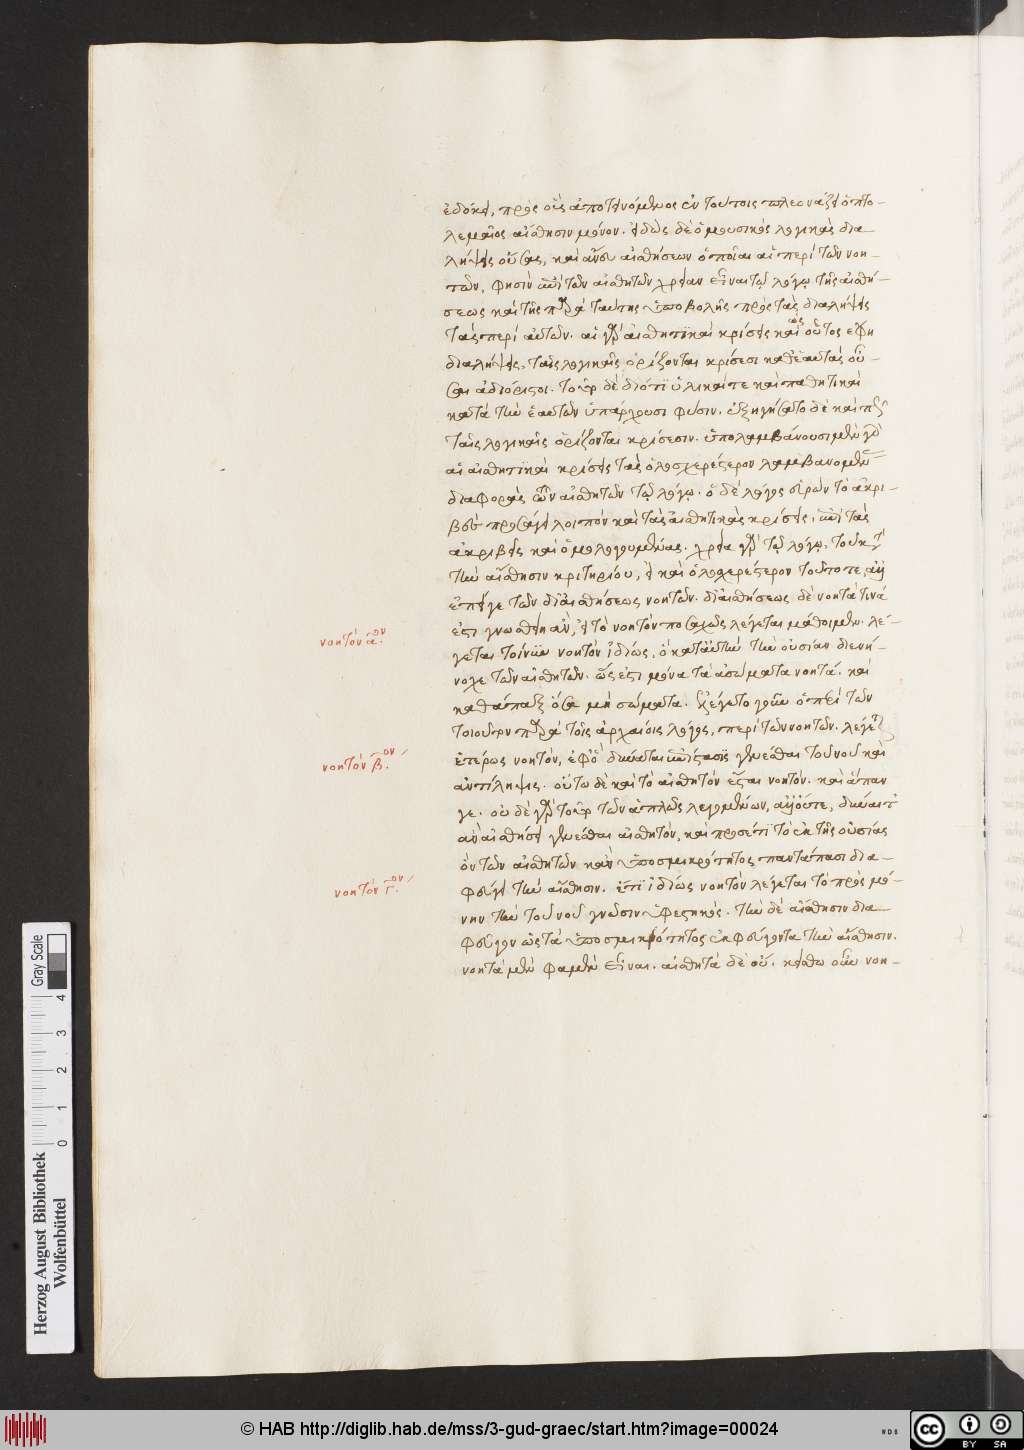 ἐδόκει, πρὸς οὓς ἀποτεινόμενος ἐν τούτοις πλεονάζει ὁ πτο-
λεμαῖος αἴσθησιν μόνον. εἰδὼς δὲ ὁ μουσικὸς λογικὰς δια
λήψεις οὔσας, καὶ ἄνευ αἰσθήσεων ὁποῖαι αἱ περὶ τῶν νοη-
τῶν, φησὶν ἐπὶ τῶν αἰσθητῶν χρείαν εἶναι τῷ λόγῳ τῆς αἰσθή-
σεως καὶ τῆς παρὰ ταύτης ὑποβολῆς πρὸς τὰς διαλήψεις
τὰς περὶ αὐτῶν. αἱ γὰρ αἰσθητικαὶ κρίσεις καὶ ὡς οὗτος ἔφη
διαλήψεις, ταῖς λογικαῖς ὁρίζονται κρίσεσι καθ' ἑαυτὰς οὖ-
σαι ἀδιόριστοι. τὸ γὰρ δὲ διότι ὑλικαί τε καὶ παθητικαὶ
κατὰ τὴν ἑαυτῶν ὑπάρχουσι φύσιν. ἐξηγήσατο δὲ καὶ πῶς
ταῖς λογικαῖς ὁρίζονται κρίσεσιν. ὑπολαμβάνουσι μὲν γὰρ
αἱ αἰσθητικαὶ κρίσεις τὰς ὁλοσχερέστερον λαμβανομένας
διαφορὰς τῶν αἰσθητῶν τῷ λόγῳ. ὁ δὲ λόγος εὑρὼν τὸ ἀκρι-
βὲς προσάγει λοιπὸν καὶ τὰς αἰσθητικὰς κρίσεις, ἐπὶ τὰς
ἀκριβεῖς καὶ ὁμολογουμένας. χρεία γὰρ τῷ λόγῳ, τοῦ κατὰ
τὴν αἴσθησιν κριτηρίου, εἰ καὶ ὁλοσχερέστερον τοῦτό ποτε, ἀλλ'
ἐπεί γε τῶν δι' αἰσθήσεως νοητῶν. δι' αἰσθήσεως δὲ νοητὰ τινά
ἐστι γνωσθείη ἂν, εἰ τὸ νοητὸν ποσαχῶς λέγεται μάθοιμεν. λέ-
γεται τοίνυν νοητὸν ἰδίως, ὁ κατ' αὐτὴν τὴν οὐσίαν διενή-
νοχε τῶν αἰσθητῶν. ὥς ἐστι μόνα τὰ ἀσώματα νοητά. καὶ
καθάπαξ ὅσα μὴ σώματα. ἐλέγετο γοῦν ὁ περὶ τῶν
τοιούτων παρὰ τοῖς ἀρχαίοις λόγος, περὶ τῶν νοητῶν. λέγεται
ἑτέρως νοητὸν, ἐφ' ὃ δύναται ἐπίστασις γενέσθαι τοῦ νοῦ καὶ
ἀντίληψις. οὕτω δὲ καὶ τὸ αἰσθητὸν ἔσται νοητόν. καὶ ἅπαν
γε. οὐδὲ γὰρ τὸ γὰρ τῶν ἁπλῶς λεγομένων, ἀλλ' οὔτε, δύναιτ'
ἂν αἰσθήσει γενέσθαι αἰσθητὸν, καὶ προσέτι τὸ ἐκ τῆς οὐσίας
ὂν τῶν αἰσθητῶν κἂν ὑπὸ σμικρότητος παντάπασι δια-
φεύγει τὴν αἴσθησιν. ἔτι ἰδίως νοητὸν λέγεται τὸ πρὸς μό-
νην τὴν τοῦ νοῦ γνῶσιν ὑφεστηκός. τὴν δὲ αἴσθησιν δια
φεῦγον ὡς τὰ ὑπὸ σμικρότητος ἐκφεύγοντα τὴν αἴσθησιν.
νοητὰ μὲν φαμὲν εἶναι. αἰσθητὰ δὲ οὔ. κείσθω οὖν νοη-
νοητὸν αον.
νοητὸν βον.
νοητὸν γον.
Herzog August Bibliothek
Wolfenbüttel
0 1 2 3 4
Gray Scale
© HAB http://diglib.hab.de/mss/3-gud-graec/start.htm?image=00024
WDB
cc BY SA